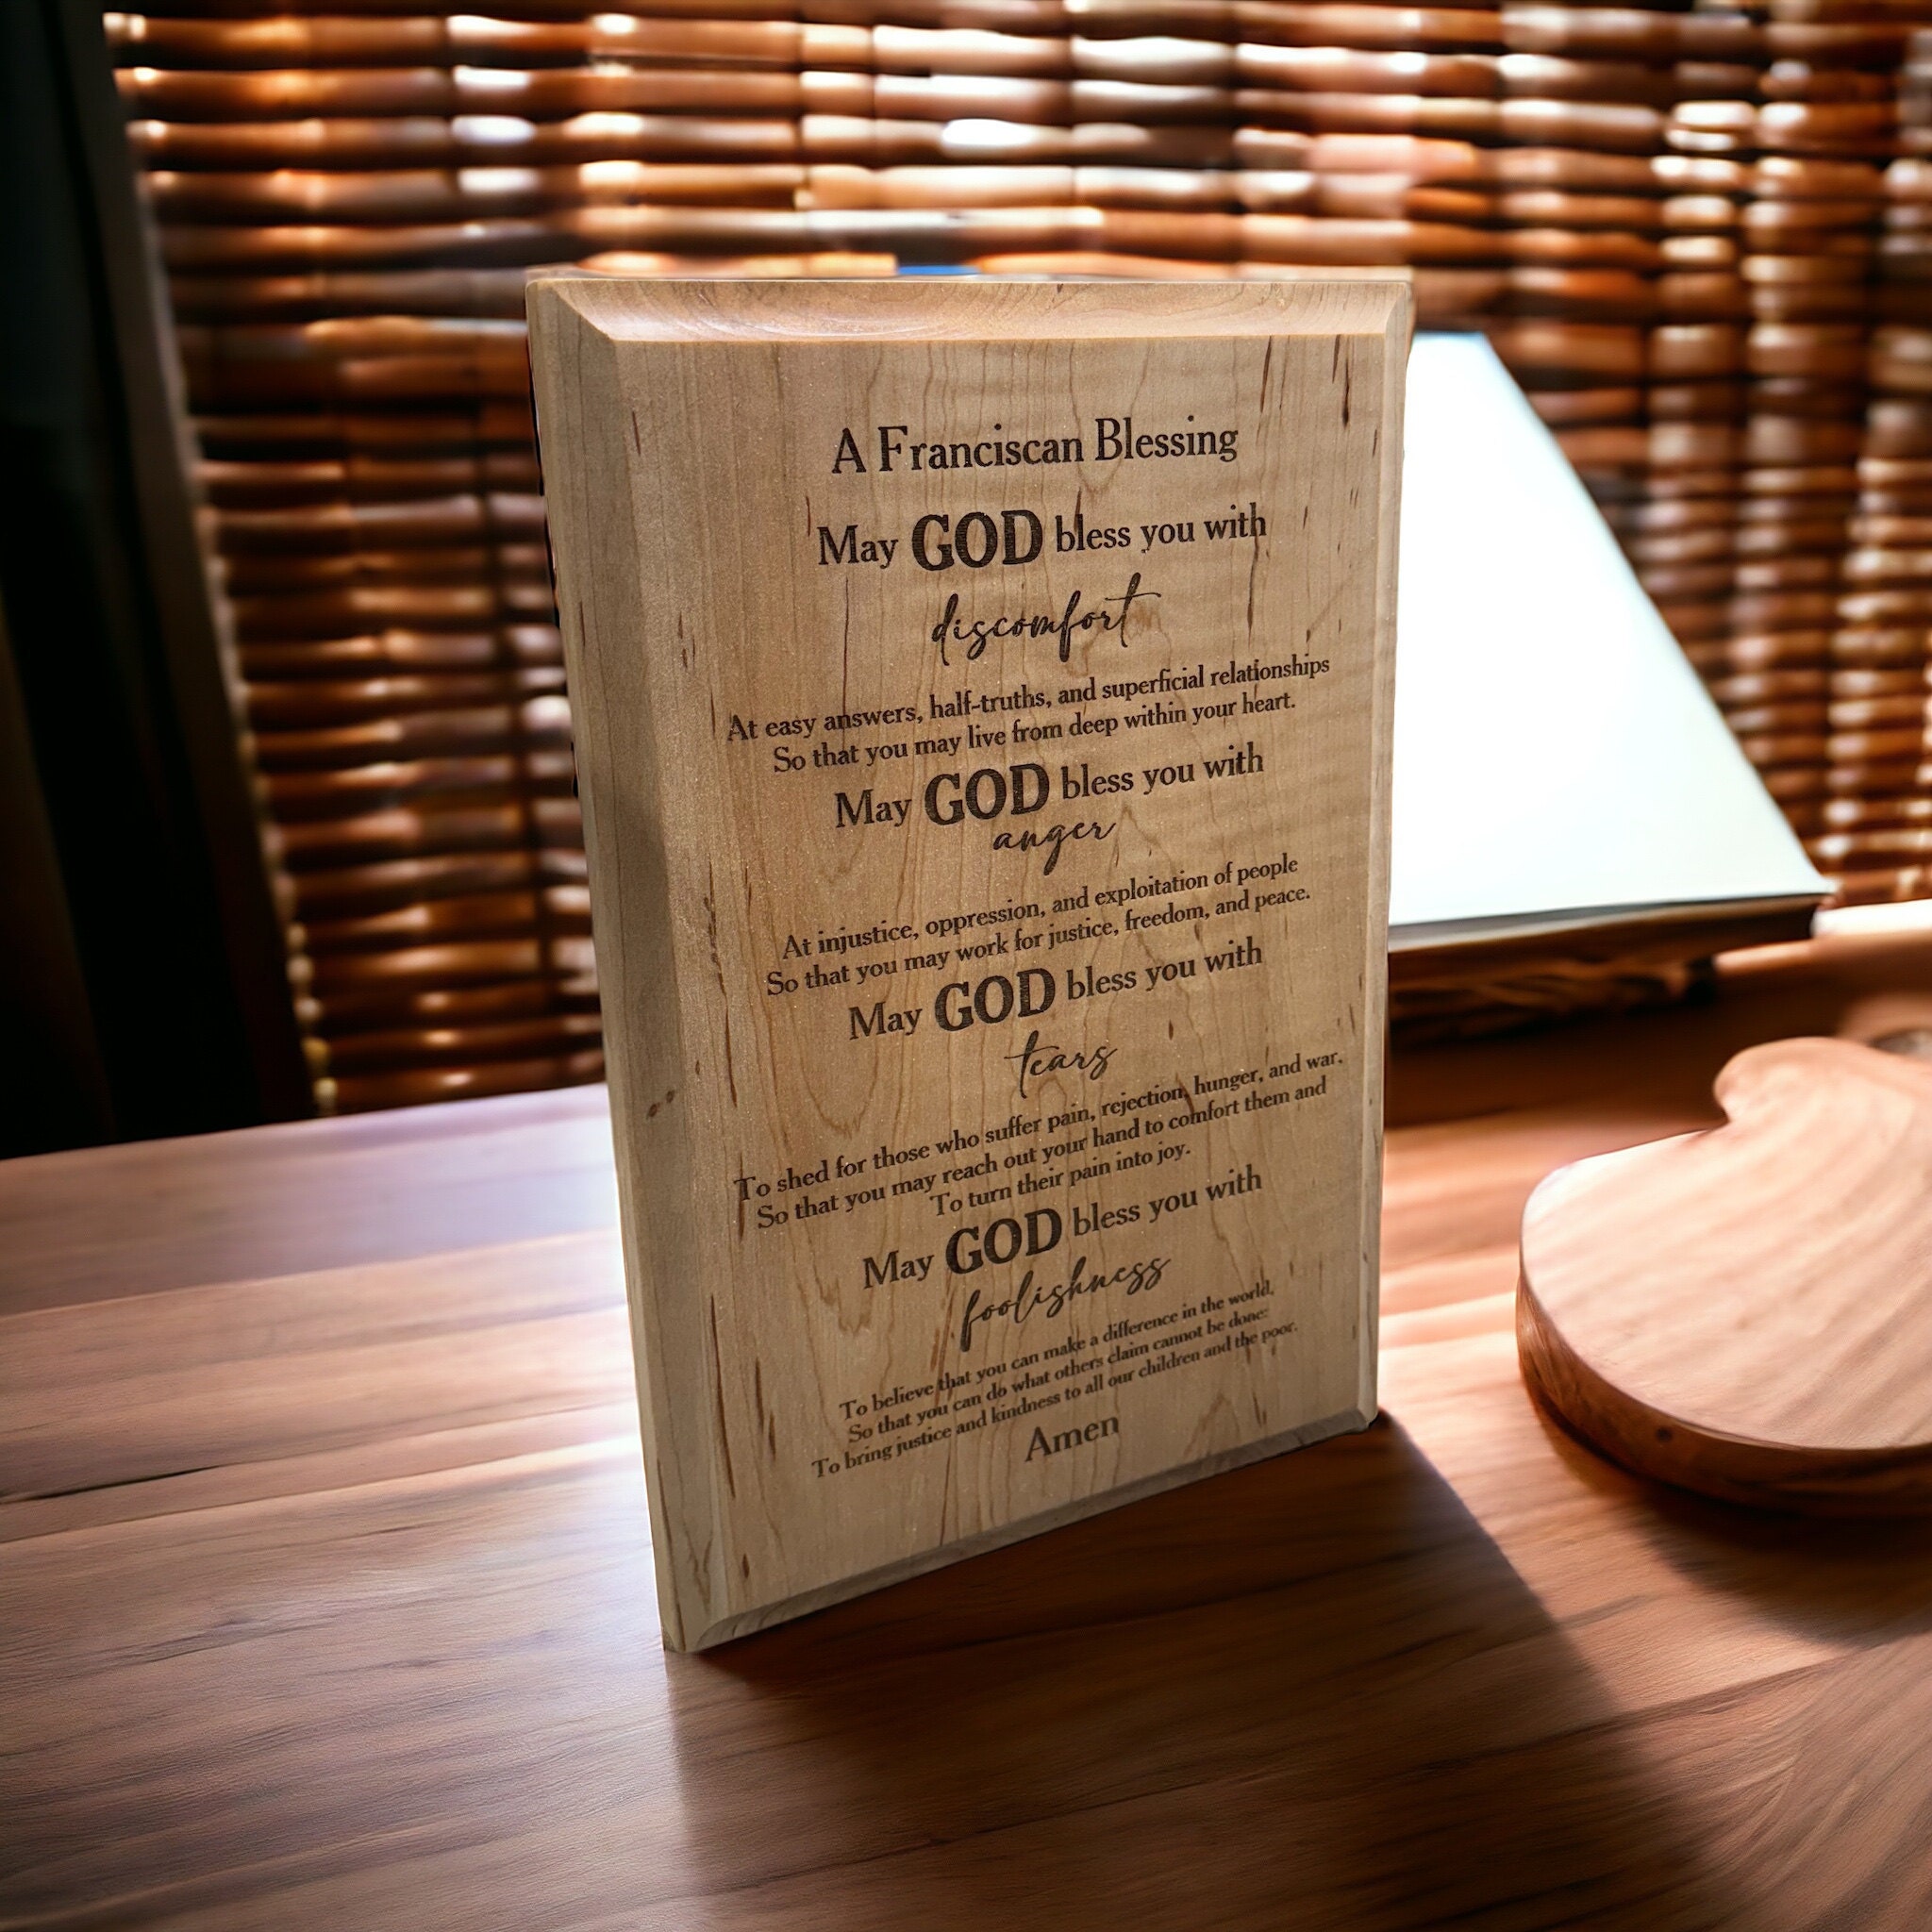 A Franciscan Blessing
May GOD bless you with
discomfort
At easy answers, half-truths, and superficial relationships
So that you may live from deep within your heart.
May GOD bless you with
anger
At injustice, oppression, and exploitation of people
So that you may work for justice, freedom, and peace.
May GOD bless you with
tears
To shed for those who suffer pain, rejection, hunger, and war.
So that you may reach out your hand to comfort them and
To turn their pain into joy.
May GOD bless you with
foolishness
To believe that you can make a difference in the world,
So that you can do what others claim cannot be done:
To bring justice and kindness to all our children and the poor.
Amen